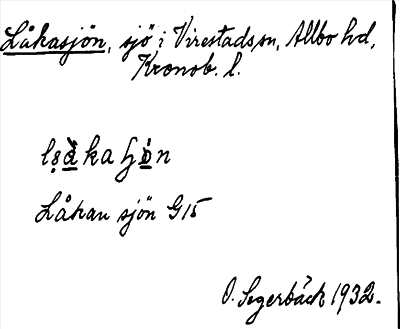 Låkasjön, sjö i Virestads sn, Allbo hd,
Kronob. l.
Låkan sjön G15
O. Segerbäck 1932.